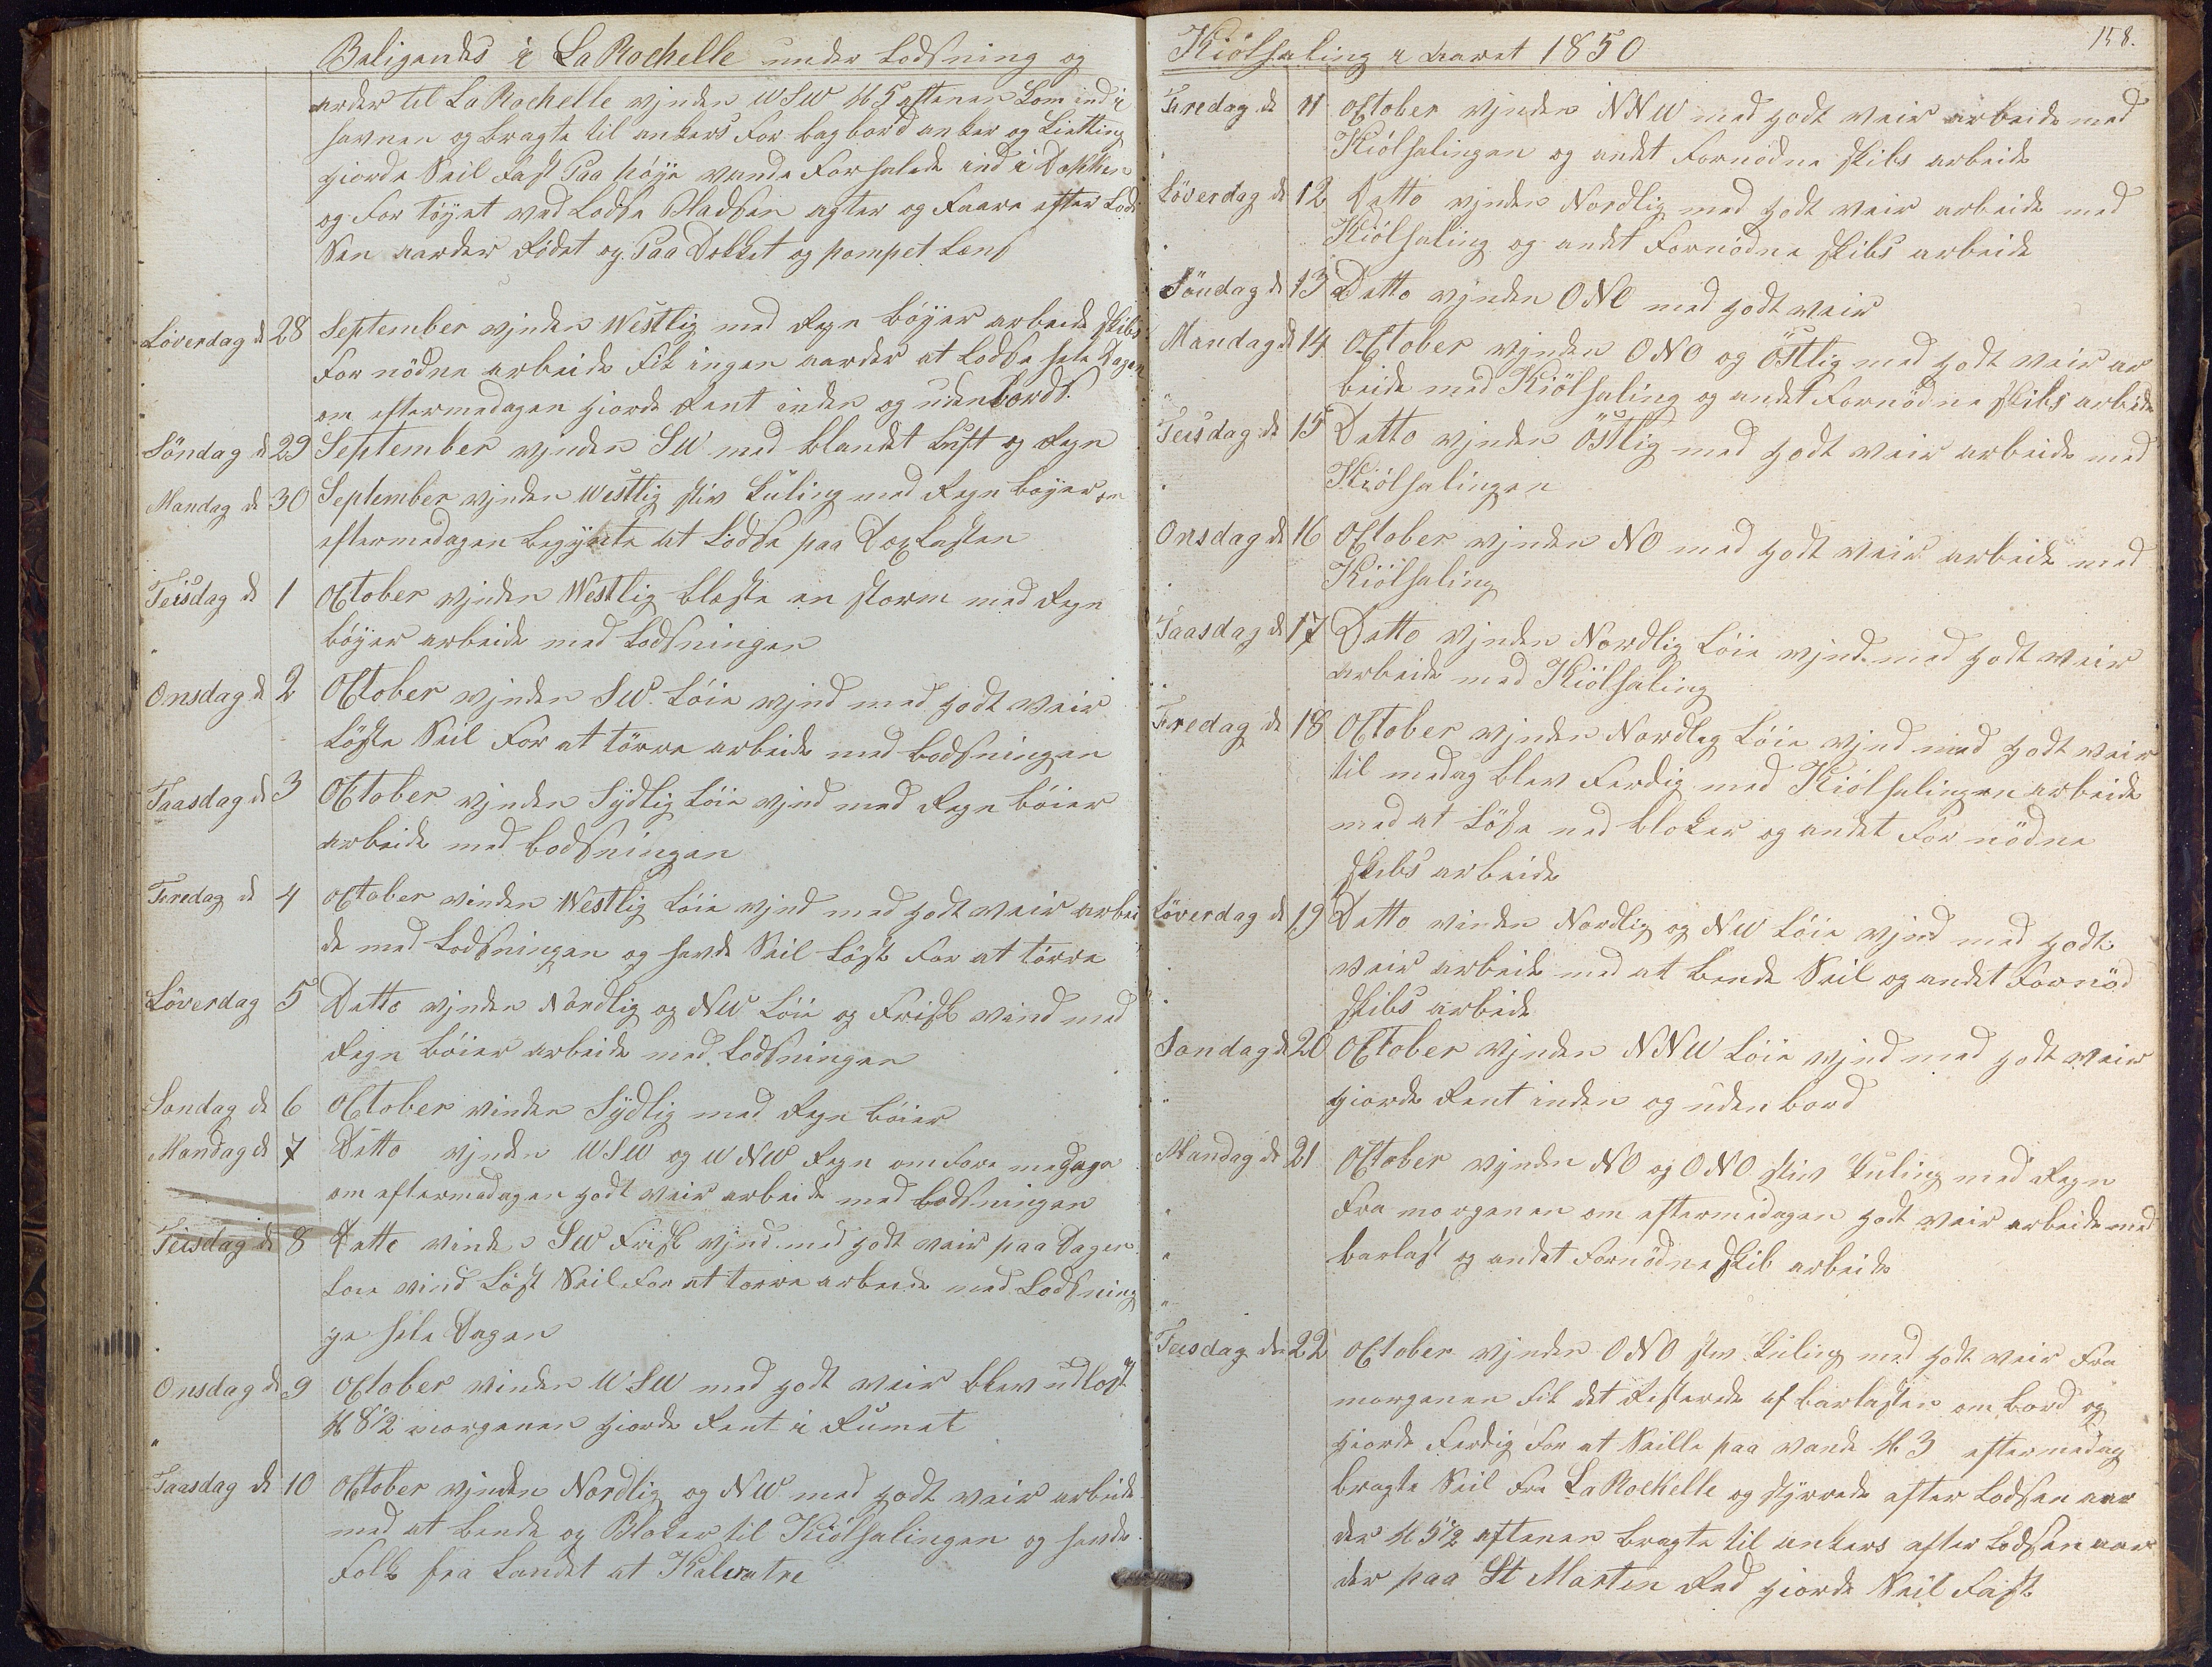 Beligends i La Rochelle under Lodsning og
arder til La Rochelle vjnden WSW kl 5 aftenen kom ind i
havnen og bragte til ankers for bagbord anker og Lietting
giorde Seil fast Paa höye vande forhalede ind i Dokken
og for töyet ved Lodse Pladsen agter og faare efter Lod
sen aarder födet og Paa Dekket og pompet Lens
Löverdag d 28 September vjnden Westlig med Regn böyer arbeide skibs
for nödne arbeide fik ingen aarder at Lodse hele Dagen
om eftermedagen giorde Rent inden og udenbords
Söndag d 29 September vjnden SW med blandet Luft og Regn
Mandag d 30 September vjnden westlig stiv kuling med Regn boyer om
eftermedagen begynte at Lodse paa Dexlasten
Teisdag d 1 October vjnden Westlig bleste en storm med Regn
böyer arbeide med Lodsningen
Onsdag d 2 October vjnden SW. Löie vjnd med godt veir
Löste Seil for at törre arbeide med Lodsningen
Taasdag d 3 October vjnden Sÿdlig Löie vjnd med Regn böier
arbeide med Lodsningen
Feredag d 4 October vinden Westlig Löie vjnd med godt veir arbei
de med Lodsningen og havde Seil Löst for at törre
Löverdag 5 Detto vjnden Nordlig og NW Löie og Frisk vind med
Regn böier arbeide med Lodsningen
Sondag d 6 October vinden Sÿdlig med Regn böier
Mandag d 7 Detto vjnden WSW og WNW Regn om fore medagen
om eftermedagen godt veir arbeide med Lodsningen
Teisdag d 8 Detto vinden SW Frisk vjnd med godt veir paa Dagen
Loie vind Löst Seil for at torre arbeide med Lodsning
ge hele Dagen
Onsdag d 9 October vinden WSW med godt veir blev udlost
kl 8 1/2 morgenen giorde Rent i Rumet
Taasdag d 10 October vjnden Nordlig og NW med godt veir arbeide
med at bende og Bloker til Kiölhalingen og havde
folk fra Landet at Kalvatre
Kiölhaling i aaret 1850
158.
Feredag d 11 October vjnden NNW med godt veir arbeide med
Kiölhalingen og andet fornödne skibs arbeide
Löverdag d 12 Detto vjnden Nordlig med godt veir arbeide med
Kiölhaling og andet fornödne skibs arbeide
Söndag d 13 Detto vjnden ONO med godt veir
Mandag d 14 October vjnden ONO og östlig med godt veir ar
beide med Kiölhaling og andet fornödne skibs arbeide
Teisdag d 15 Detto vjnden östlig med godt veir arbeide med
Kiölhalingen
Onsdag d 16 October vjnden NO med godt veir arbeide med
Kiölhaling
Taasdag d 17 Detto vjnden Nordlig Löie vjnd med godt veir
arbeide med Kiölhaling
Feredag d 18 October vjnden Nordleg Löie vjnd med godt veir
til medag blev ferdig med Kiölhalingen arbeide
med at Löse ned bloker og andet for nödne
skibs arbeide
Löverdag d 19 Detto vinden Nordlig og NW Löie vjnd med godt
veir arbeide med at bende Seil og andet fornöd
skibs arbeide
Sondag d 20 October vjnden NNW Löie vjnd med godt veir
giorde Rent inden og uden bord
Mandag d 21 October vjnden NO og ONO stiv kuling med Regn
fra morgenen om eftermedagen godt veir arbeide med
barlast og andet fornödne skib arbeide
Teisdag den 22 October vjnden ONO stiv kuling med godt veir fra
morgenen fik det Resterede af barlasten om bord og
giorde ferdig for at Seille paa vande kl 3 eftermedag
bragte Seil fra La Rockelle og styrede efter Lodsen aar
der kl 5 1/2 aftenen bragte til ankers efter Lodsen aar
der paa St Marten Red giorde Seil fast